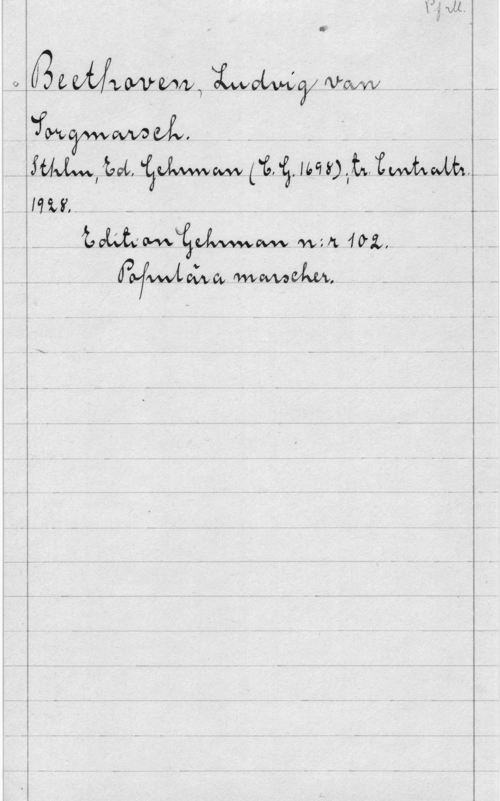 Pf M.
Beethoven, Ludwig van
Sorgmarsch.
Sthlm, Ed. Gehrman (C.G. 1698); tr. Centraltr.
1928.
Edition Gehrman n:r 102.
Populära marscher.